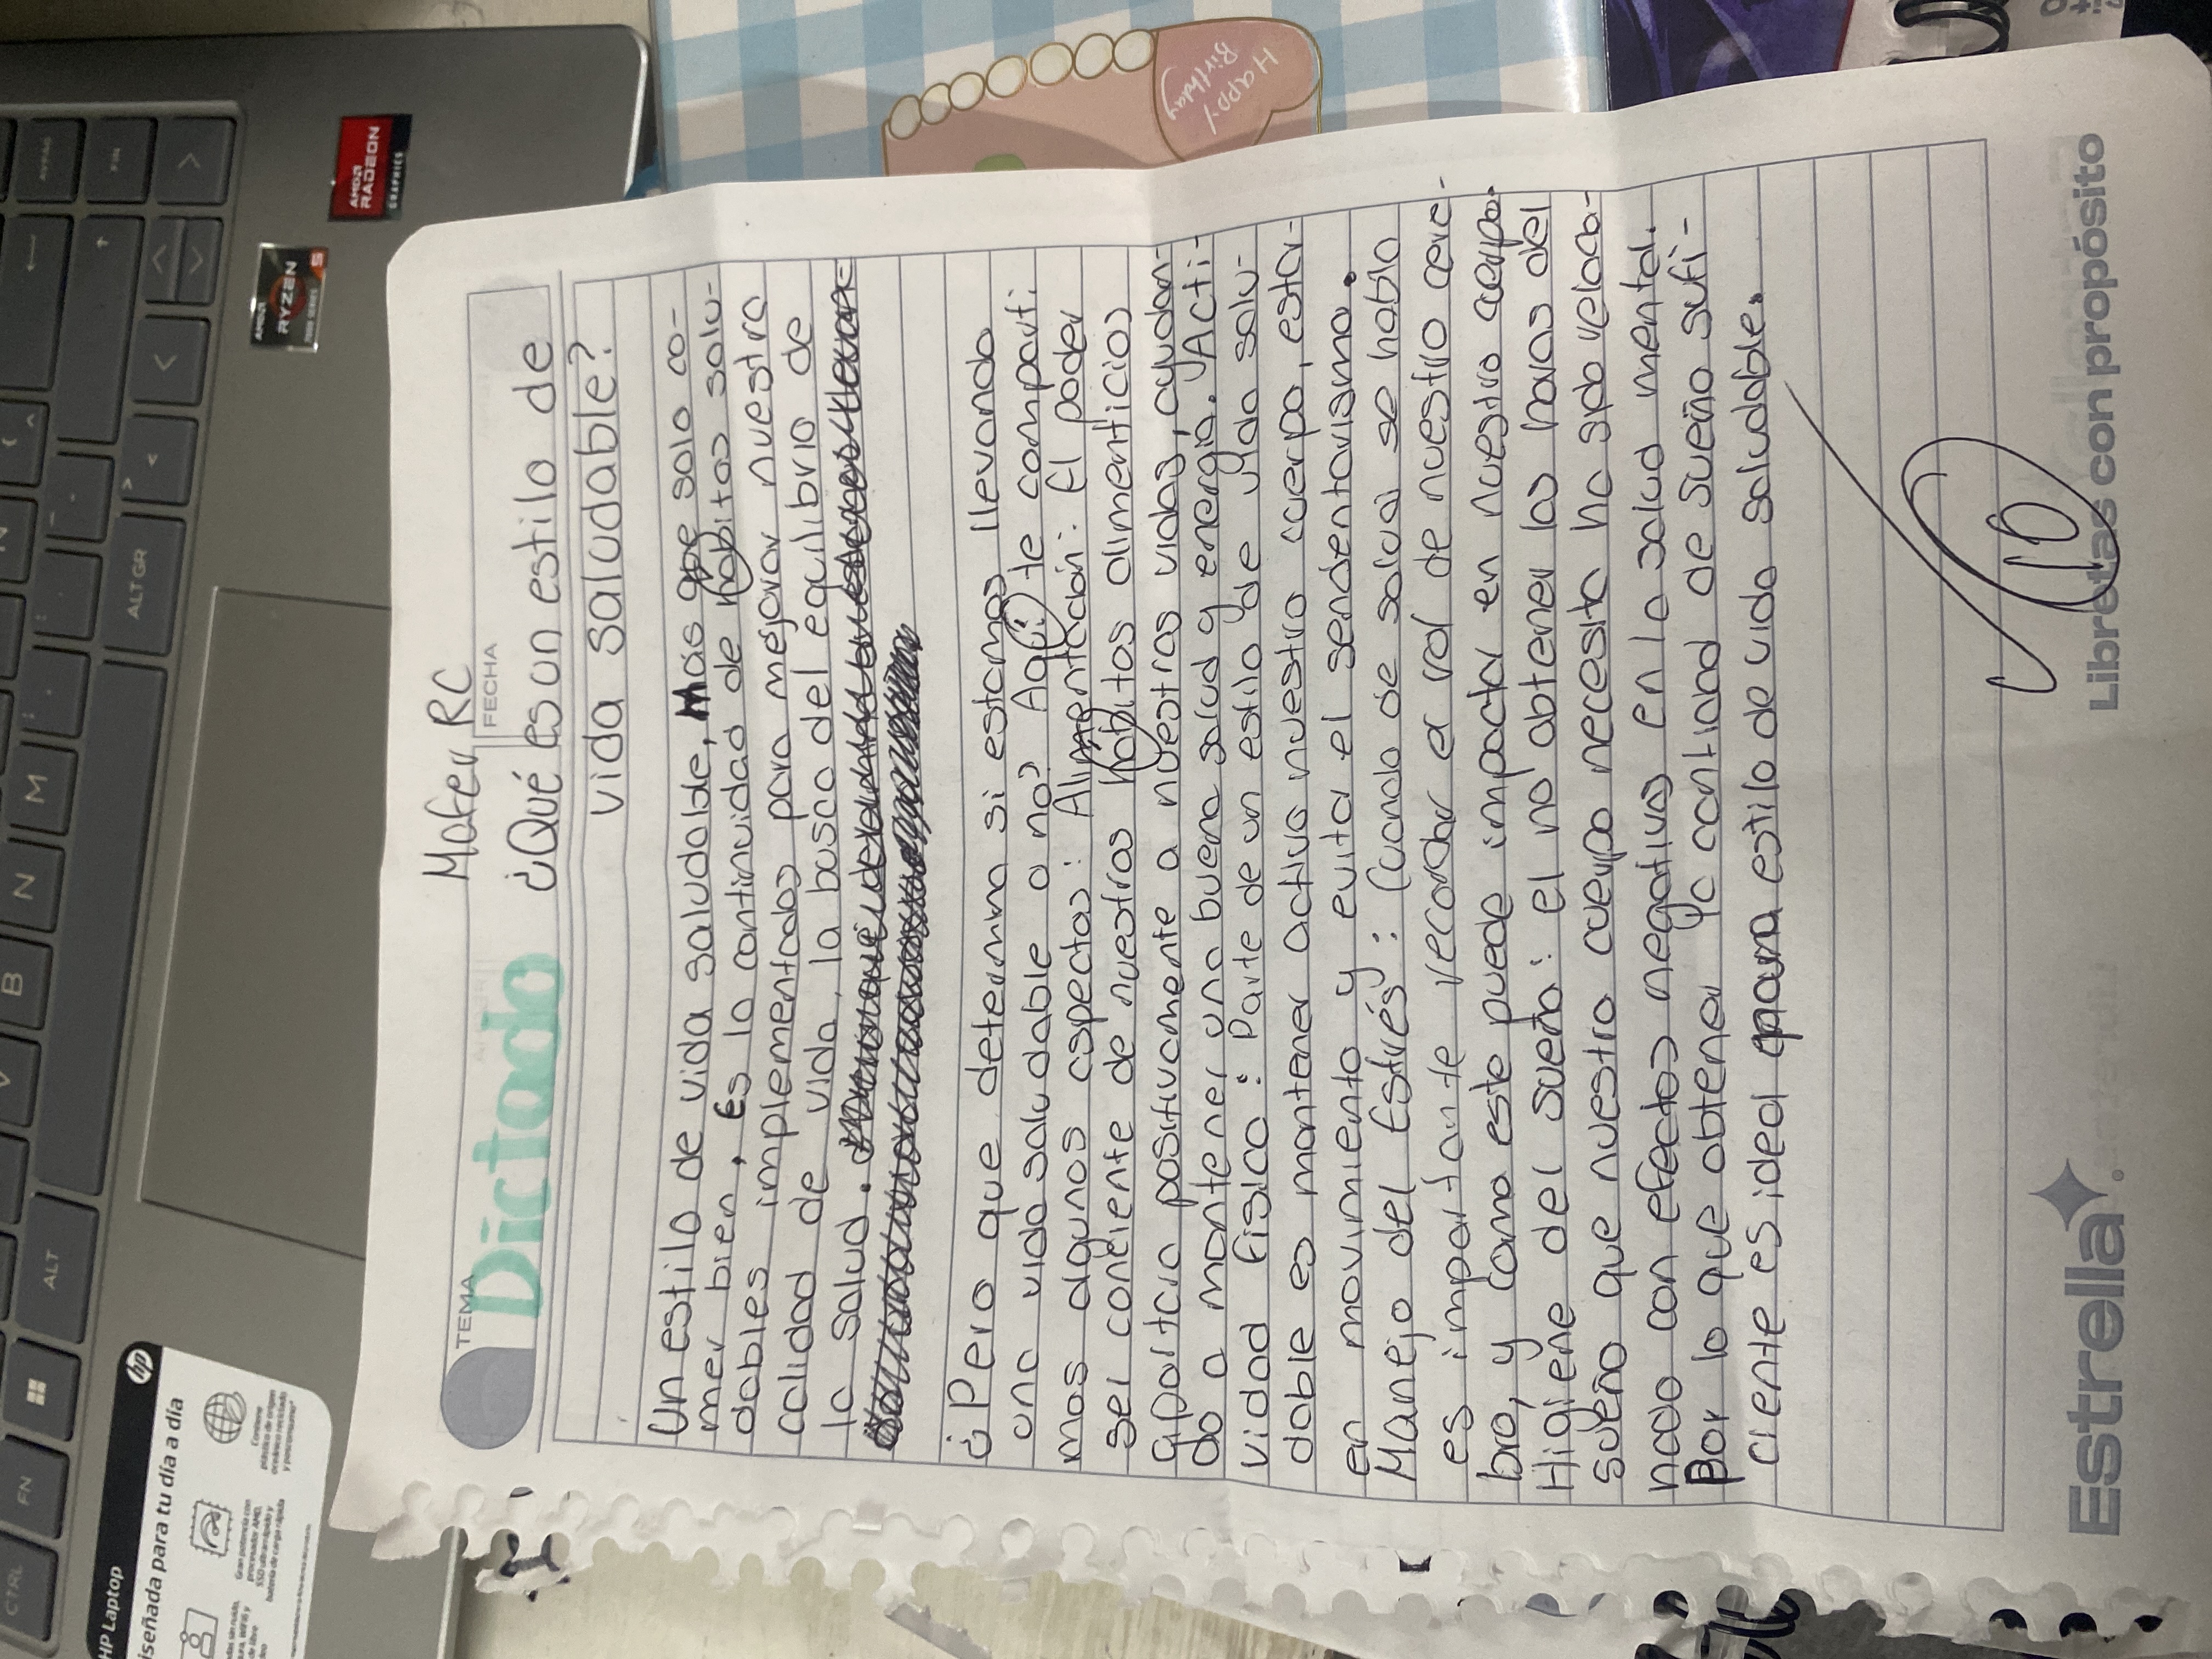 Mafer RC
TEMA
FECHA
Dictado
¿Qué es un estilo de
vida saludable?
Un estilo de vida saludable, Mas que solo co-
mer bien, Es la continuidad de habitos salu-
dables implementados para mejorar nuestra
calidad de vida, la busca del equilibrio de
la salud.
¿Pero que determina si estamos llevando
una vida saludable o no? Aqui te comparti
mos algunos aspectos: Alimentación: El poder
ser conciente de nuestros habitos alimenticios
aporticia positivamente a nuestras vidas, ayudan-
do a mantener una buena salud y energía. Acti-
vidad física: Parte de un estilo de vida salu-
dable es mantener activo nuestro cuerpo, estar
en movimiento y evita el sendentarismo.
Manejo del Estrés: Cuando de salud se habla
es importante recordar el rol de nuestro cere-
bro, y como este puede impactar en nuestro cuerpo.
Higiene del sueño: el no obtener las horas del
sueño que nuestro cuerpo necesita ha sido relacio-
nado con efectos negativos en la salud mental.
Por lo que obtener la cantidad de sueño sufi-
ciente es ideal para estilo de vida saludable.
10
Estrella
Libretas con propósito
HP Laptop
iseñada para tu día a día
hp
AMD
RYZEN
5
AMD
RADEON
GRAPHICS
CTRL
FN
ALT
ALT GR
V
B
N
M
FIN
Happy
Birthday